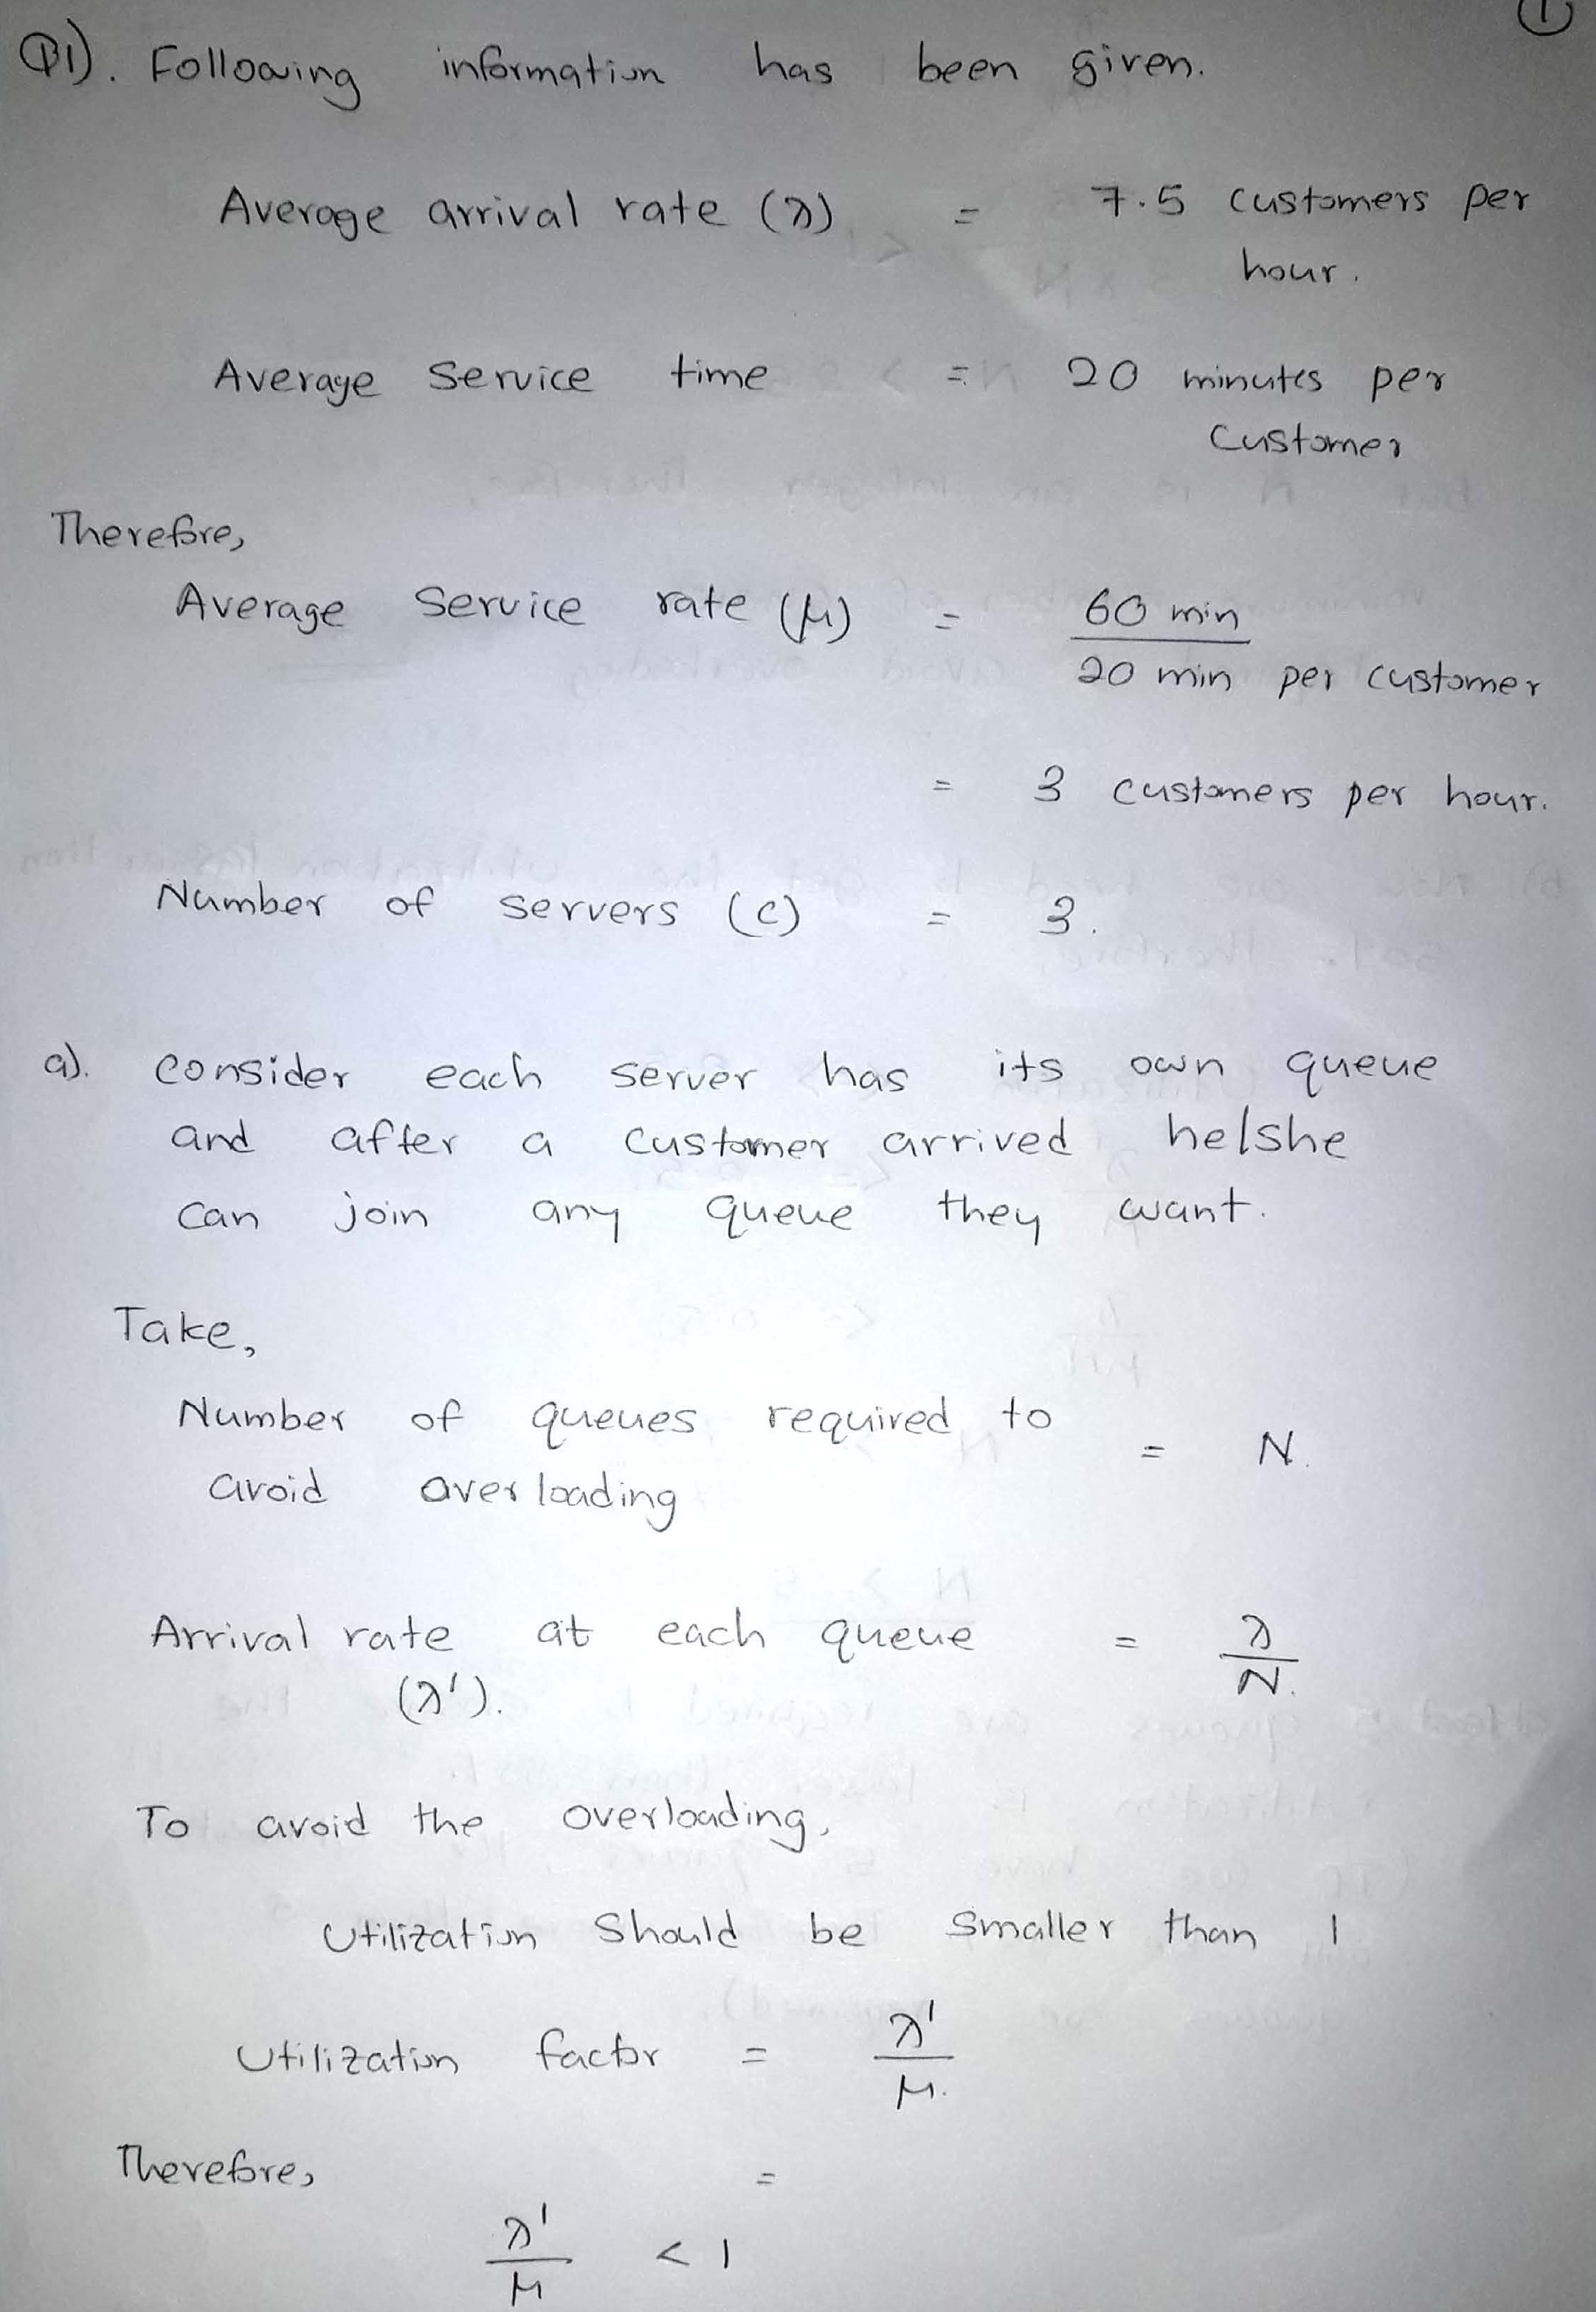 ①
Q1). Following information has been given.
Average arrival rate (λ) = 7.5 customers per
hour.
Average Service time = 20 minutes per
Customer
Therefore,
Average Service rate (μ) = 60 min
20 min per customer
= 3 customers per hour.
Number of servers (c) = 3.
a). Consider each server has its own queue
and after a customer arrived he/she
can join any queue they want.
Take,
Number of queues required to
= N.
avoid over loading
Arrival rate at each queue = λ
N.
(λ').
To avoid the overloading,
Utilization Should be Smaller than 1
Utilization factor = λ'
μ.
Therefore,
=
λ'
< 1
μ